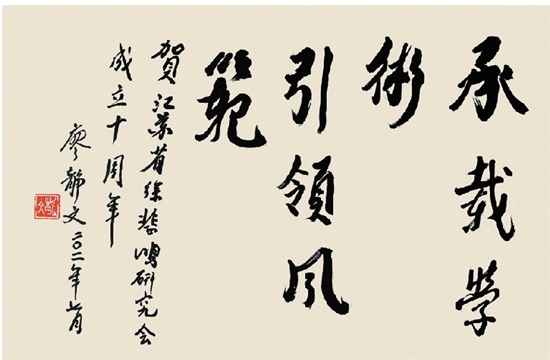 承載學
術
引領风
範
賀江苏省徐悲鴻研究会
成立十周年
廖静文二〇一二年